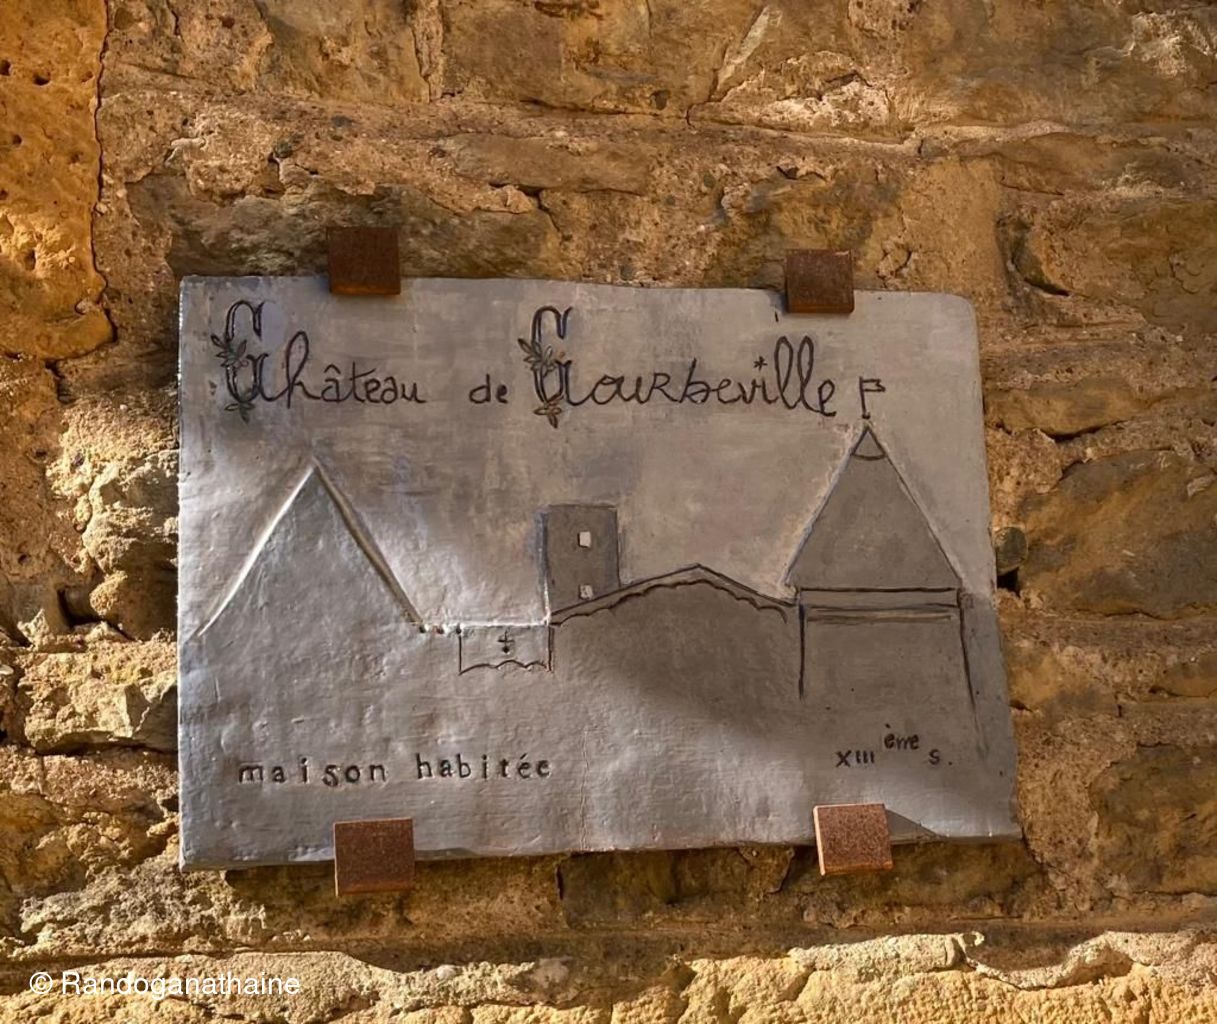 Château de Courbeville
maison habitée
XIII ème s.
© Randoganathaine